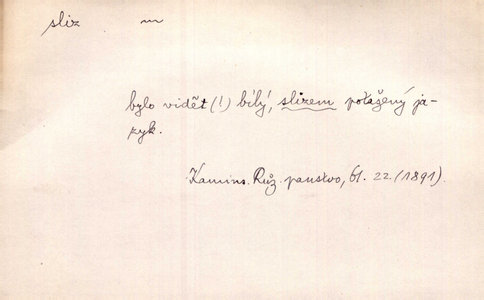 sliz m
bylo vidět (!) bílý, slizem potažený ja-
zyk.
Kamins. Růž. panstvo, 61. 22. (1891).